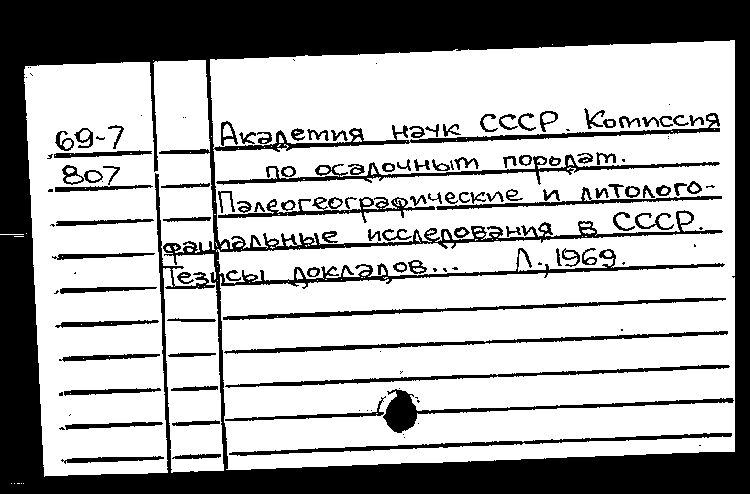 69-7 Академия наук СССР. Комиссия
807 по осадочным породам.
Палеогеографические и литолого-
фациальные исследования в СССР.
Тезисы докладов... Л., 1969.